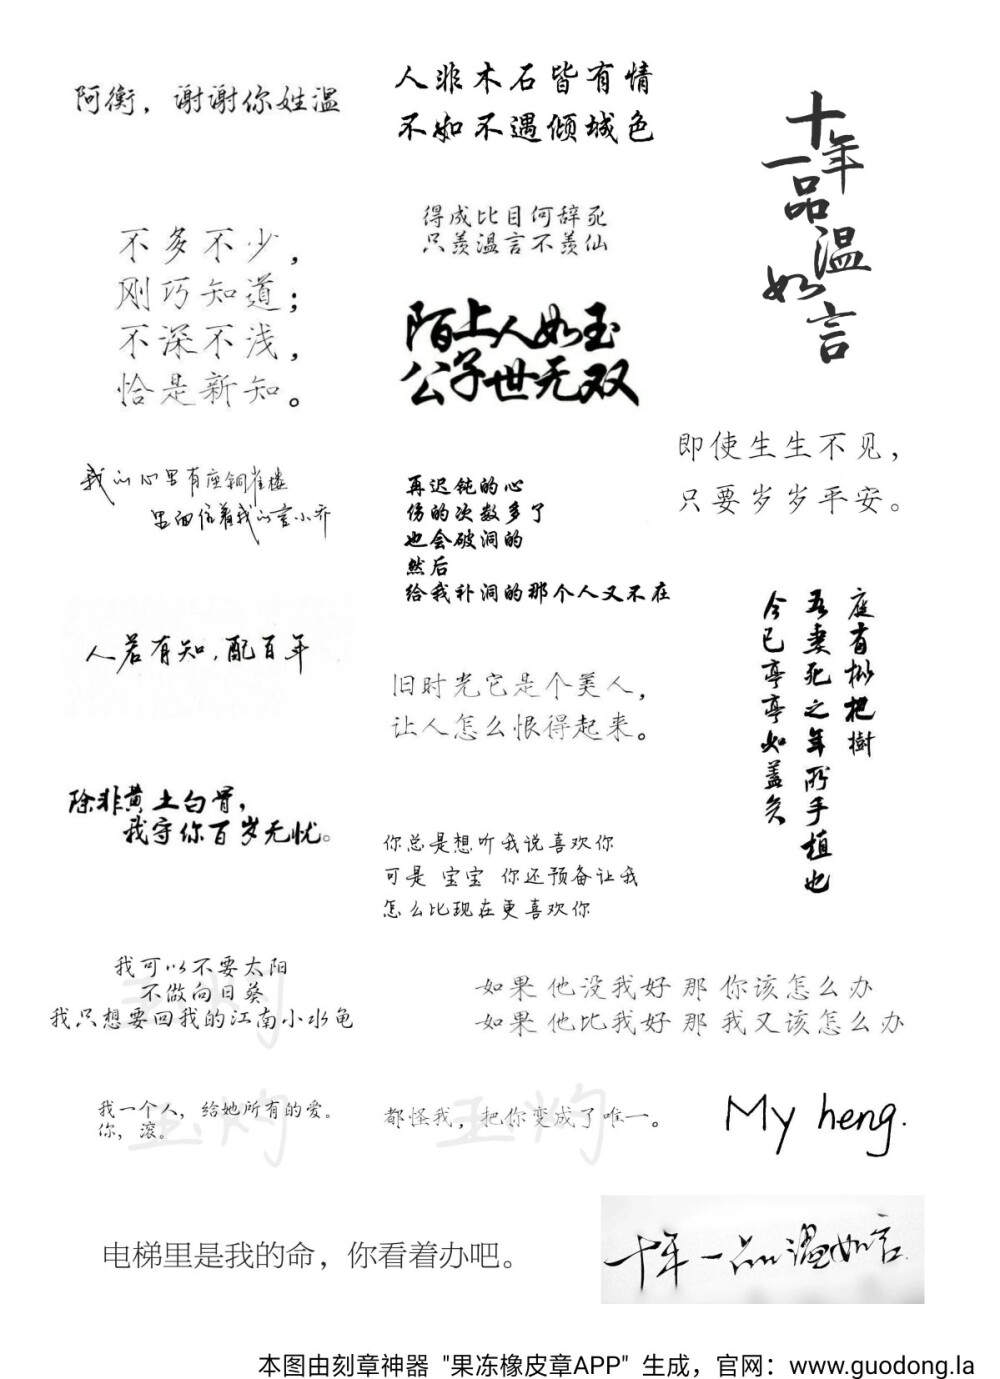 阿衡，谢谢你姓温
人非木石皆有情
不如不遇倾城色
十年
一品
温
如
言
得成比目何辞死
只羡温言不羡仙
不多不少，
刚巧知道；
不深不浅，
恰是新知。
陌上人如玉
公子世无双
即使生生不见，
只要岁岁平安。
我的心里有座铜雀楼
里面住着我的言小乔
再迟钝的心
伤的次数多了
也会破洞的
然后
给我补洞的那个人又不在
庭有枇杷樹
吾妻死之年所手植也
今已亭亭如蓋矣
人若有知，配百年
旧时光它是个美人，
让人怎么恨得起来。
除非黄土白骨，
我守你百岁无忧。
你总是想听我说喜欢你
可是 宝宝 你还预备让我
怎么比现在更喜欢你
我可以不要太阳
不做向日葵
我只想要回我的江南小水龟
如果 他没我好 那 你该怎么办
如果 他比我好 那 我又该怎么办
我一个人，给她所有的爱。
你，滚。
都怪我，把你变成了唯一。
My heng.
电梯里是我的命，你看着办吧。
十年一品温如言
本图由刻章神器 "果冻橡皮章APP" 生成，官网：www.guodong.la